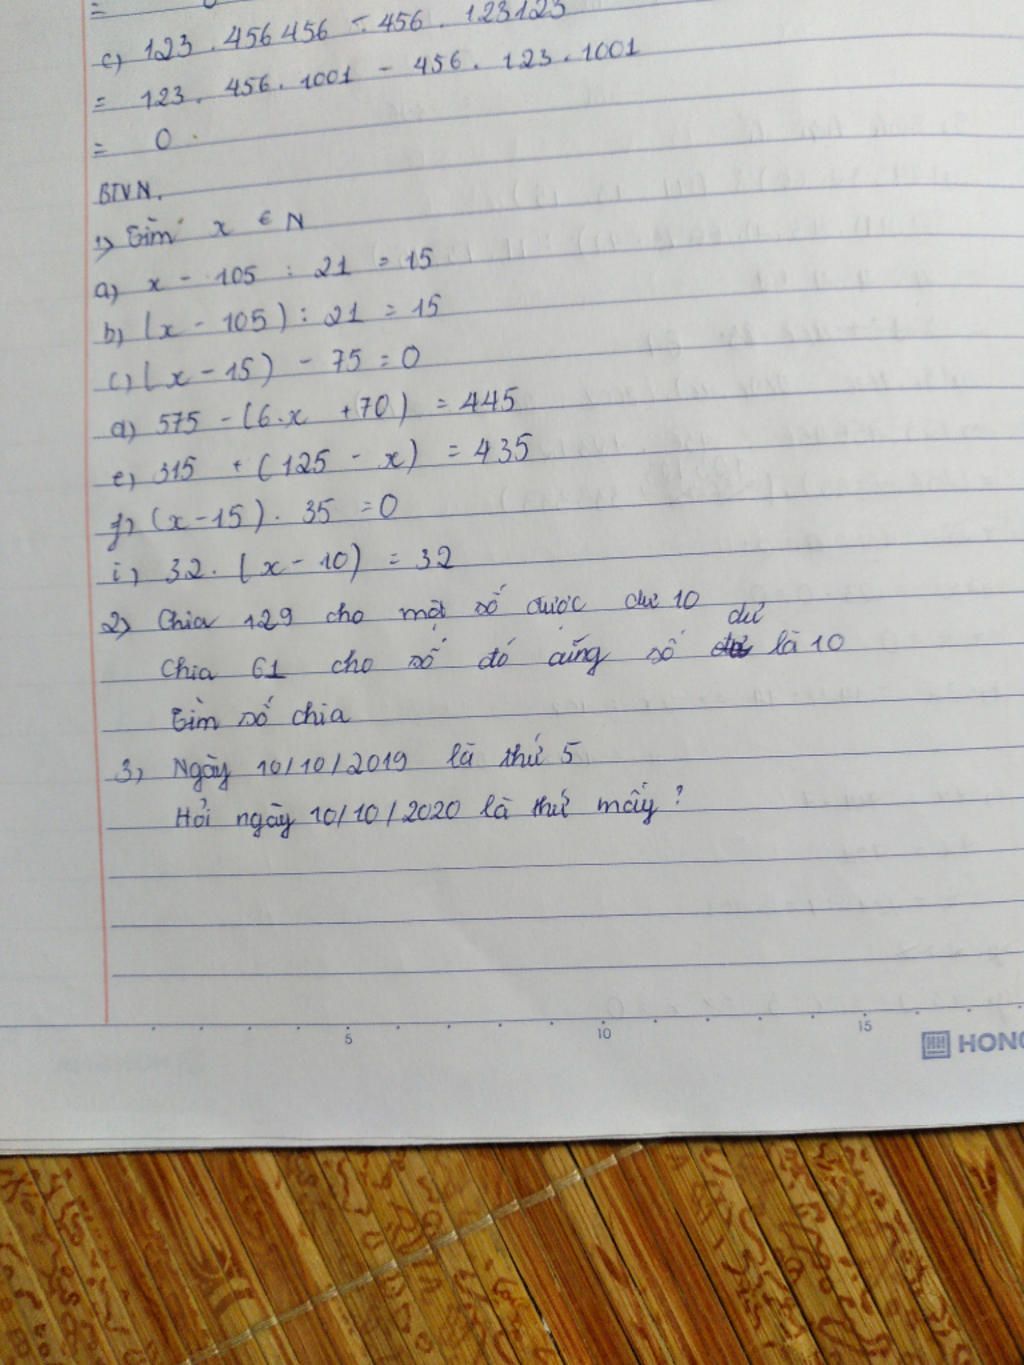 =
c) 123 . 456 456 - 456 . 123123
= 123 . 456 . 1001 - 456 . 123 . 1001
= 0
BTVN.
1) Tìm x ∈ N
a) x - 105 : 21 = 15
b) (x - 105) : 21 = 15
c) (x - 15) - 75 = 0
d) 575 - (6.x + 70) = 445
e) 315 + (125 - x) = 435
f) (x - 15) . 35 = 0
i) 32 . (x - 10) = 32
2) Chia 129 cho một số được dư 10
Chia 61 cho số đó cũng số dư là 10
Tìm số chia
3) Ngày 10/10/2019 là thứ 5
Hỏi ngày 10/10/2020 là thứ mấy ?
5 10 15
HONG